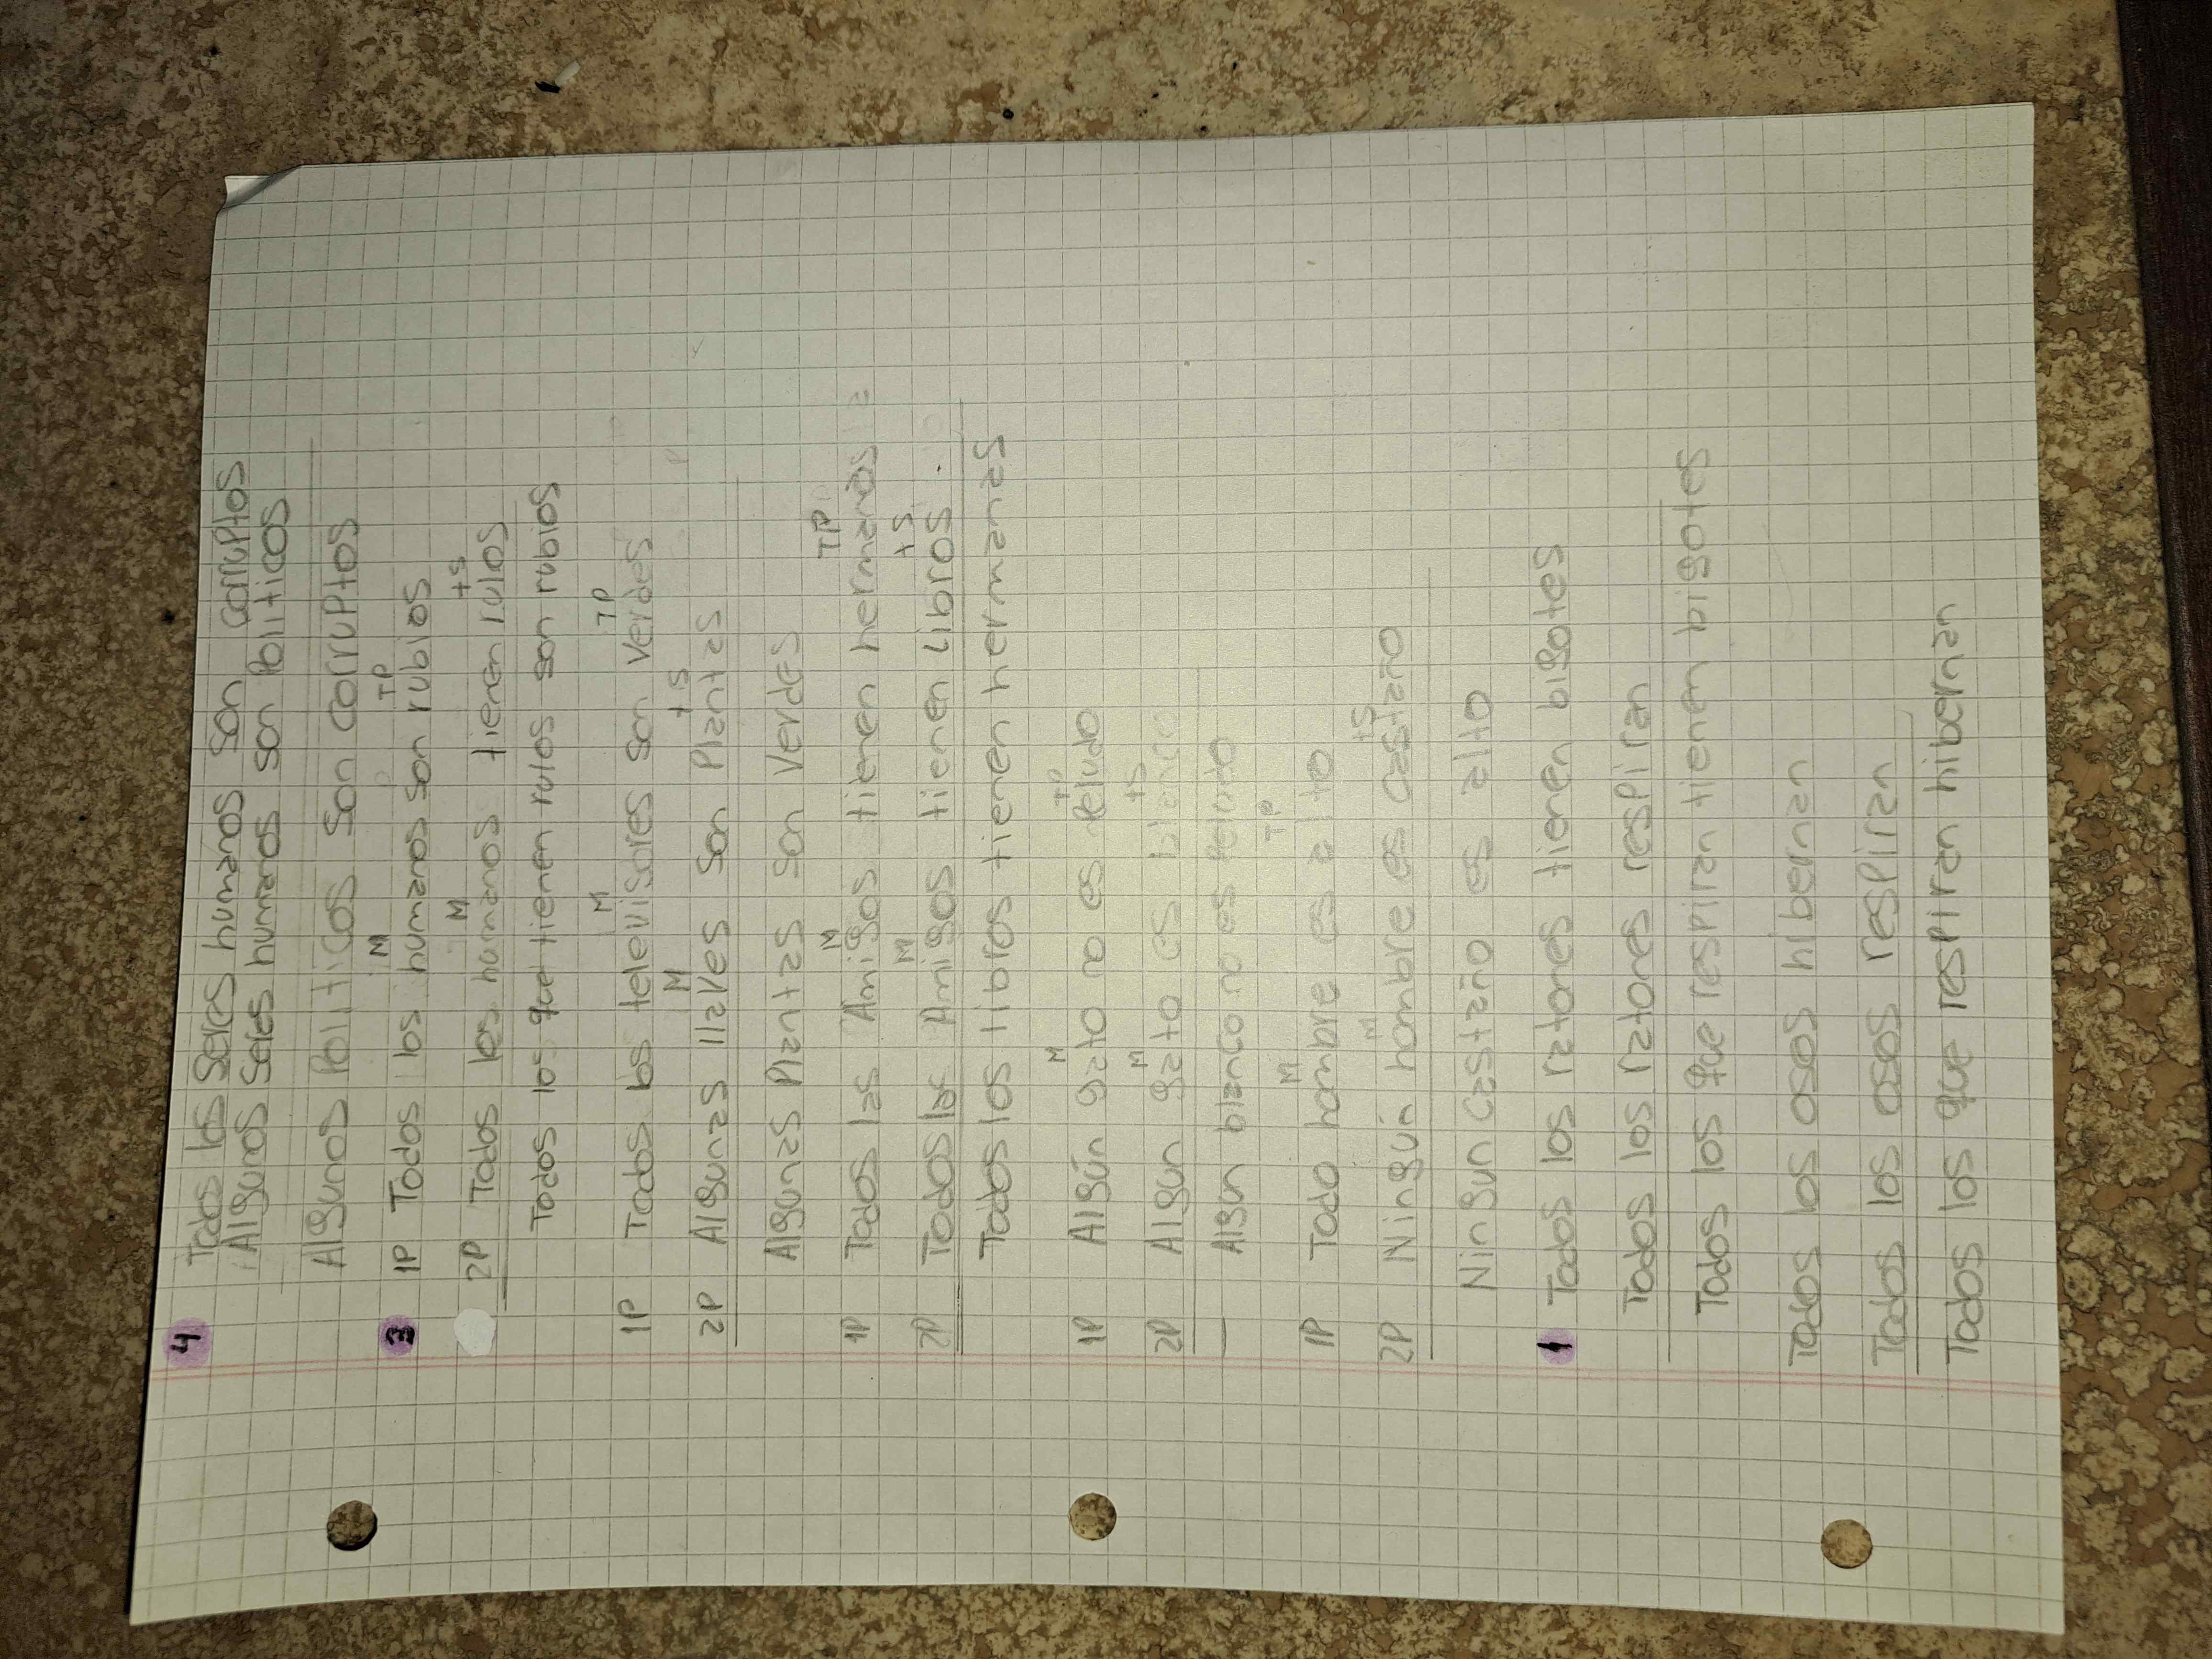 4 Todos los Seres humanos son corruptos
Algunos Seres humanos son Politicos
Algunos Politicos son corruptos
M TP
3 1P Todos los humanos son rubios
M tS
2P Todos los humanos tienen rulos
Todos los que tienen rulos son rubios
M TP
1P Todos los televisores son Verdes
M tS
2P Algunas llaves son Plantas
Algunas Plantas son Verdes
M TP
1P Todos las Amigos tienen hermanos
M tS
2P Todos las Amigos tienen libros
Todos los libros tienen hermanas
M TP
1P Algún gato no es Peludo
M tS
2P Algun gato es blanco
Algun blanco no es Peludo
M TP
1P Todo hombre es alto
M tS
2P Ningún hombre es castaño
Ningun castaño es alto
1 Todos los ratones tienen bigotes
Todos los ratones respiran
Todos los que respiran tienen bigotes
Todos los osos hibernan
Todos los osos respiran
Todos los que respiran hibernan